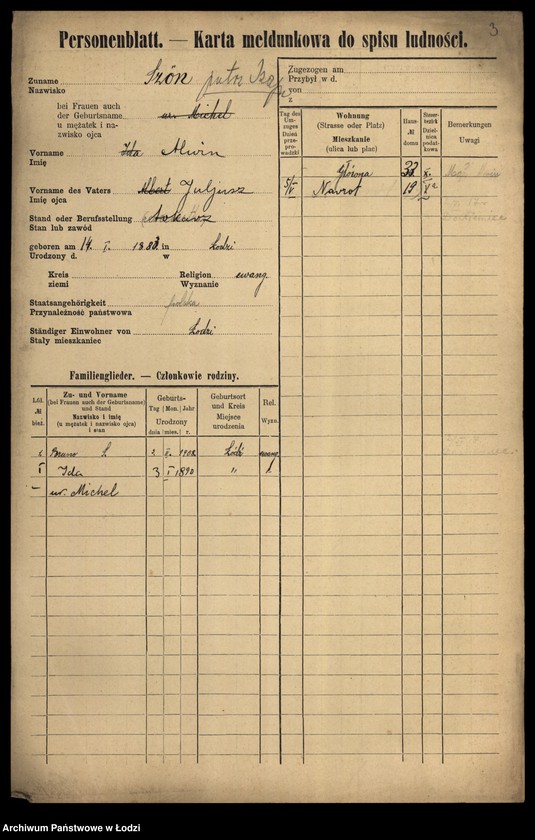 3
Personenblatt. — Karta meldunkowa do spisu ludności.
Zuname Szön patrz
Nazwisko
bei Frauen auch
der Geburtsname ur. Michel
u mężatek i na-
zwisko ojca
Vorname Ida Alwin
Imię
Vorname des Vaters Albert Juljusz
Imię ojca
Stand oder Berufsstellung
Stan lub zawód
geboren am 14. I. 1883 in Łodzi
Urodzony d. w
Kreis Religion ewang.
ziemi Wyznanie
Staatsangehörigkeit polska
Przynależność państwowa
Ständiger Einwohner von Łodzi
Stały mieszkaniec
Familienglieder. — Członkowie rodziny.
Lfd. № bież.
Zu- und Vorname
(bei Frauen auch der Geburtsname)
und Stand
Nazwisko i imię
(u mężatek i nazwisko ojca)
i stan
Geburts-
Tag | Mon. | Jahr
Urodzony
dnia | mies. | r.
Geburtsort
und Kreis
Miejsce
urodzenia
Rel.
Wyzn.
Bruno 1908 Łódź ewang.
I Ida 3 I 1890 "
— ur. Michel
Zugezogen am
Przybył w d.
von
z
Tag des
Um-
zuges
Dzień
prze-
prowadzki
Wohnung
(Strasse oder Platz)
Mieszkanie
(ulica lub plac)
Haus-
№
domu
Steuer-
bezirk
Dziel-
nica
podat-
kowa
Bemerkungen
Uwagi
Główna 33 X.
5/IV Nawrot 19 Va
Archiwum Państwowe w Łodzi